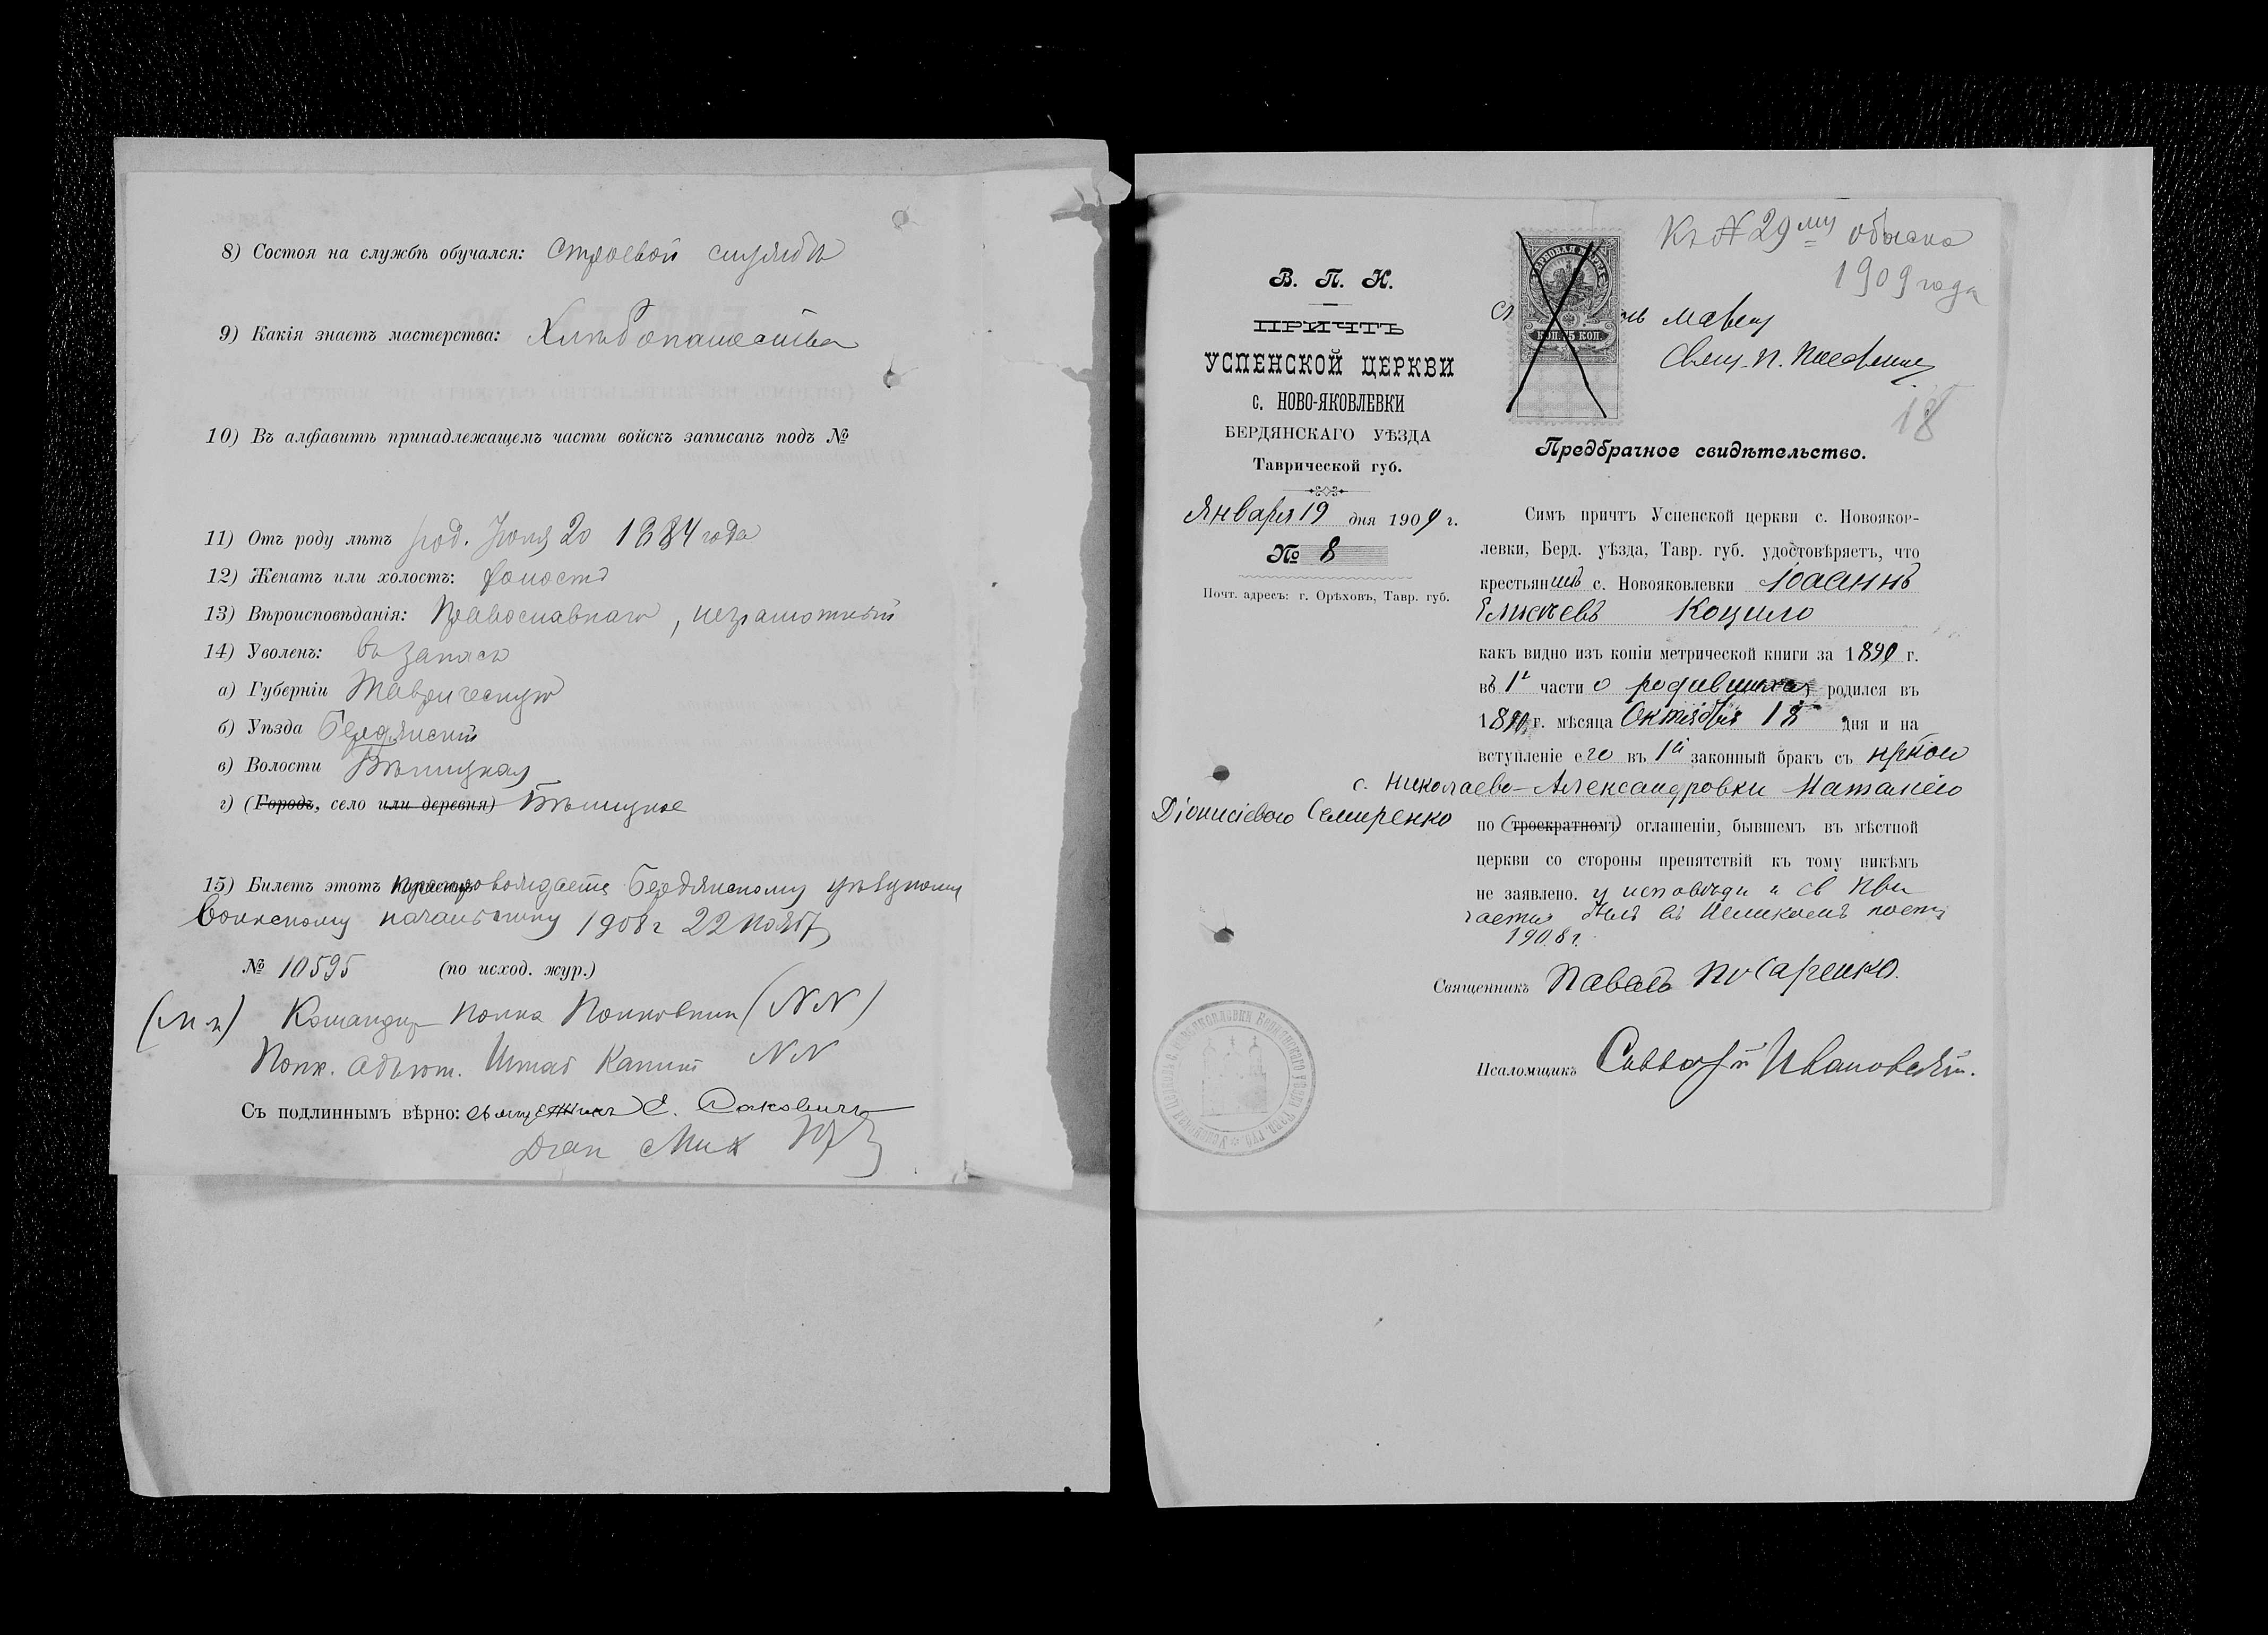 8) Состоя на службѣ обучался: Строевой службѣ
9) Какія знаетъ мастерства: Хлѣбопашества
10) Въ алфавитѣ принадлежащемъ части войскъ записанъ подъ №
11) Отъ роду лѣтъ род. Іюня 20 1884 года
12) Женатъ или холостъ: Холостъ
13) Вѣроисповѣданія: Православнаго, неграмотный
14) Уволенъ: въ запасъ
а) Губерніи Таврическую
б) Уѣзда Бердянскій
в) Волости
г) (Городъ, село или деревня)
15) Билетъ этотъ препровождается Бердянскому уѣздному
Воинскому начальнику 1908 г 22 нояб
№ 10595 (по исход. жур.)
(М п) Командир полка Полковник (NN)
Полк. адъют. Штаб Капит NN
Съ подлиннымъ вѣрно: Священникъ С.
Діак Мих
Къ № 29му обыска
1909 года
марку
Свящ. П.
18
КОП. 75 КОП.
В. П. И.
ПРИЧТЪ
УСПЕНСКОЙ ЦЕРКВИ
с. НОВО-ЯКОВЛЕВКИ
БЕРДЯНСКАГО УѢЗДА
Таврической губ.
Января 19 дня 1909 г.
№ 8
Почт. адресъ: г. Орѣховъ, Тавр. губ.
Предбрачное свидѣтельство.
Симъ причтъ Успенской церкви с. Новояков-
левки, Берд. уѣзда, Тавр. губ. удостовѣряетъ, что
крестьянинъ с. Новояковлевки Іоаннъ
Елисѣевъ Коцило
какъ видно изъ копіи метрической книги за 1890 г.
въ 1й части о родившихся родился въ
1890 г. мѣсяца Октября 18 дня и на
вступленіе его въ 1й законный бракъ съ кр-кою
с. Николаево-Александровки Наталіею
Діонисіевою Семиренко
по (троекратномъ) оглашеніи, бывшемъ въ мѣстной
церкви со стороны препятствій къ тому никѣмъ
не заявлено. у исповѣди и св При
частія былъ въ Великомъ посту
1908 г.
Священникъ Павелъ Писаренко.
Псаломщикъ Ивановскій.